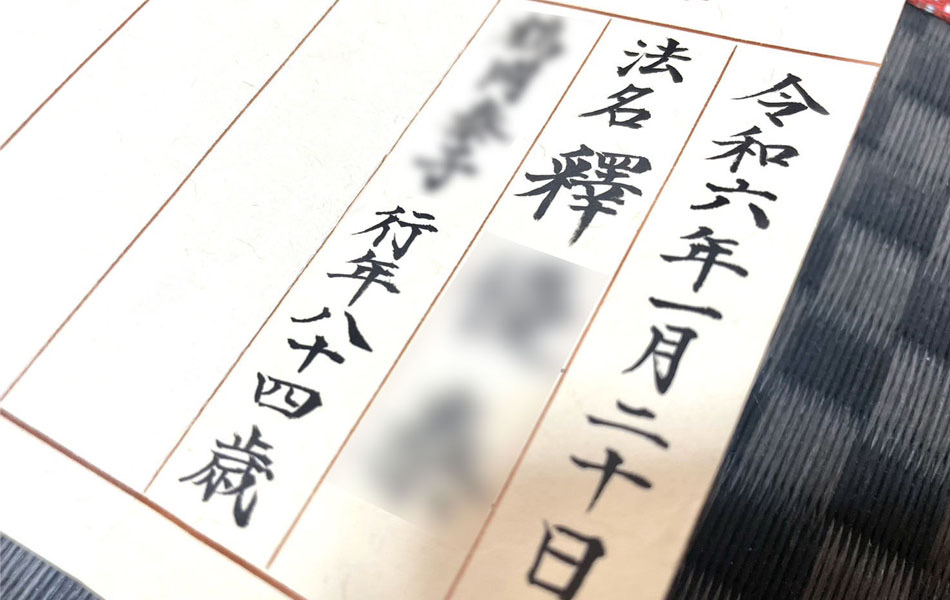 令和六年一月二十日
法名 釋
行年八十四歳